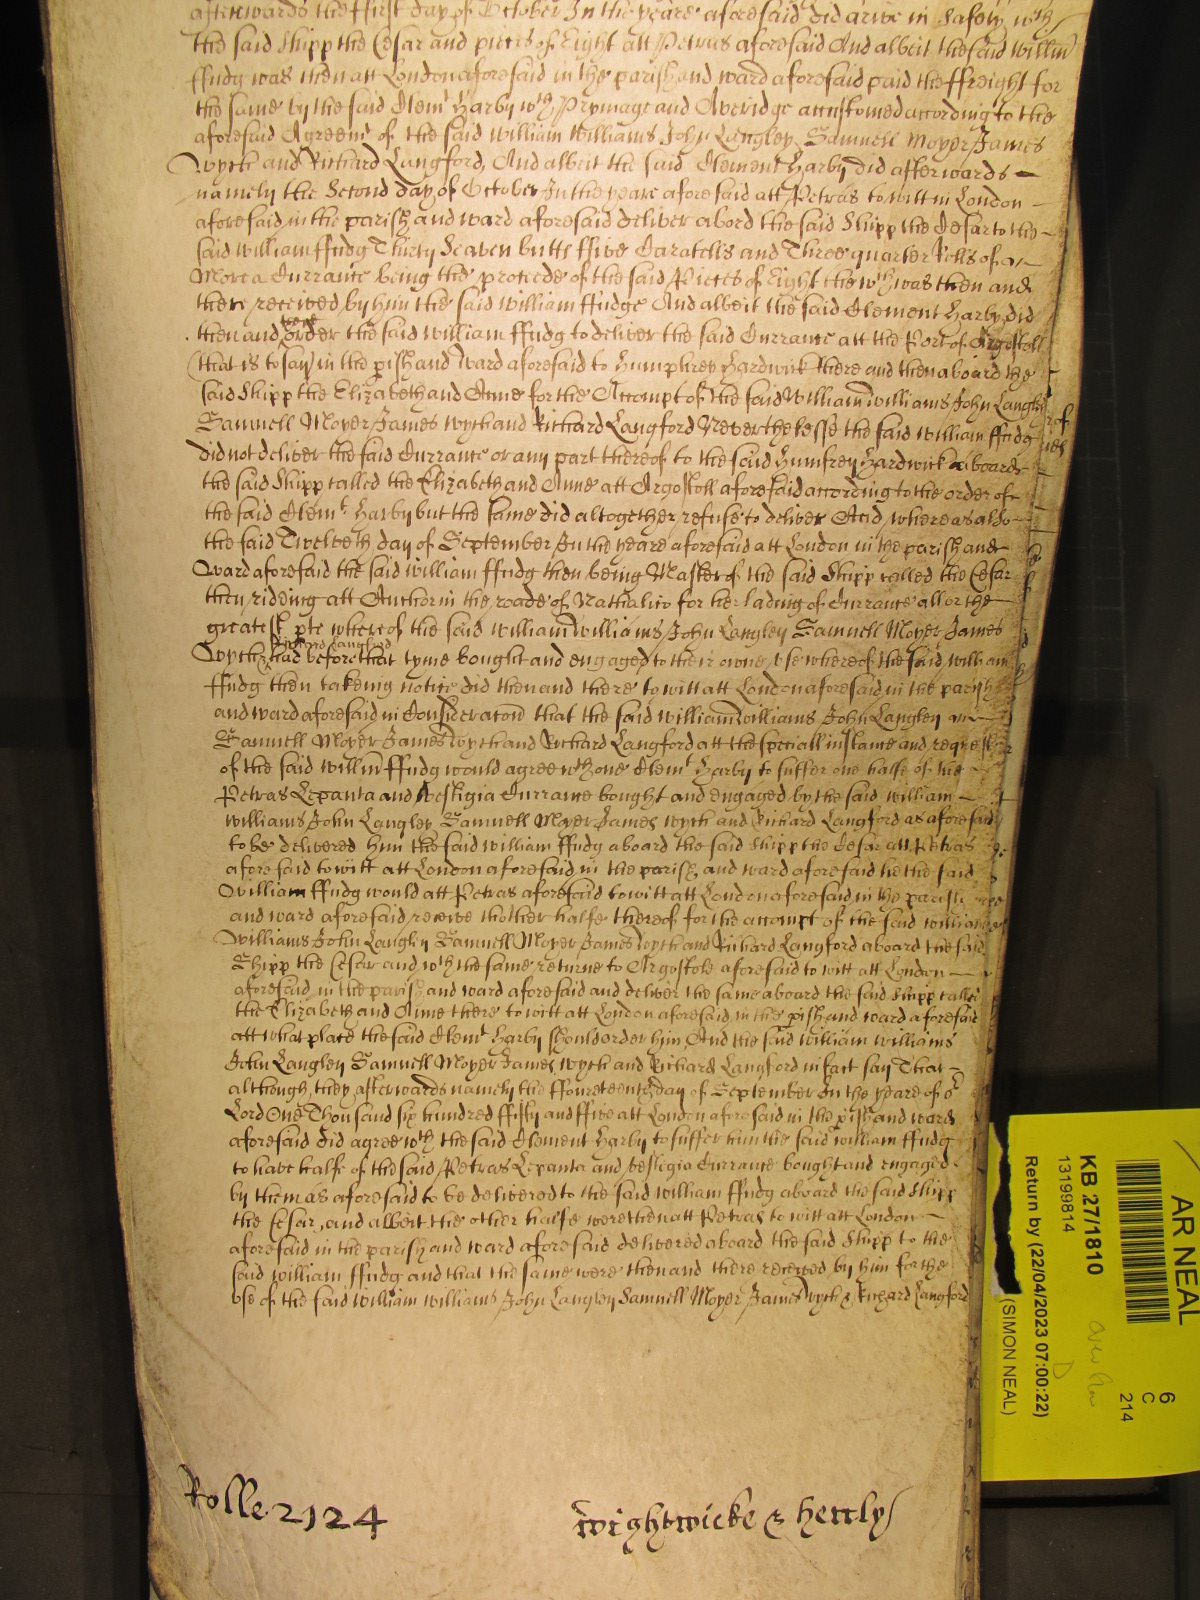 afterwards the ffirst day of October In the yeare aforesaid did arive in Safety wth
the said Shipp the Cesar and peeces of Eight att Petras aforesaid And albeit the said Willm
ffudg was then att London aforesaid in the parish and ward aforesaid paid the ffreight for
the same by the said Clemt Harby wth Prymage and Averidge accustomed according to the
aforesaid Agreemt of the said William Williams John Langley Samuell Moyer James
Wych and Richard Langford, And albeit the said Clement Harby did afterwards
namely the Second day of October In the yeare aforesaid att Petras to witt in London
aforesaid in the parish and ward aforesaid deliver abord the said Shipp the Cesar to the
said William ffudg Thirty Seaven butts ffive Caratells and Three quarter Rolls of
Morea Currance being the proceede of the said Pieces of Eight the wch was then and
there received by him the said William ffudge And albeit the said Clement Harby did
then and there order the said William ffudg to deliver the said Currance att the Port of Argostoll
(that is to say) in the pish and Ward aforesaid to Humphrey Hardwick there and then aboard the
said Shipp the Elizabeth and Anne for the Accompt of the said William Williams John Langley
Samuell Moyer James Wych and Richard Langford Neverthelesse the said William ffudg
did not deliver the said Currance or any part thereof to the said Humfrey Hardwick aboard
the said Shipp called the Elizabeth and Anne att Argostoll aforesaid according to the order of
the said Clemt Harby but the same did altogether refuse to deliver And whereas also
the said Twelveth day of September In the yeare aforesaid att London in the parish and
Ward aforesaid the said William ffudg then being Master of the said Shipp called the Cesar
then rideing att Anchor in the roade of Nathalico for her lading of Currance all or the
greatest pte whereof the said William Williams John Langley Samuell Moyer James
Wych & Richard Langford had before that tyme bought and engaged to their owne use whereof the said William
ffudg then takeing notice did then and there to witt att London aforesaid in the parish
and ward aforesaid in Consideracon that the said William Williams John Langley
Samuell Moyer James Wych and Richard Langford att the speciall instance and request
of the said Willm ffudg would agree wth one Clemt Harby to suffer one halfe of the
Petras Lepanta and Vestigia Currance bought and engaged by the said William
Williams John Langley Samuell Moyer James Wych and Richard Langford as aforesaid
to be delivered him the said William ffudg aboard the said Shipp the Cesar att Petras
aforesaid to witt att London aforesaid in the parish and ward aforesaid he the said
William ffudg would att Petras aforesaid to witt att London aforesaid in the parish
and ward aforesaid receive thother halfe thereof for the accompt of the said William
Williams John Langley Samuell Moyer James Wych and Richard Langford aboard the said
Shipp the Cesar and wth the same returne to Argostole aforesaid to witt att London
aforesaid in the parish and ward aforesaid and deliver the same aboard the said Shipp called
the Elizabeth and Anne there to witt att London aforesaid in the pish and ward aforesaid
att what place the said Clemt Harby should order him, And the said William Williams
John Langley Samuell Moyer James Wych and Richard Langford in fact say That
although they afterwards namely the ffourteenth day of September In the yeare of or
Lord One Thousand six hundred ffifty and ffive att London aforesaid in the pish and ward
aforesaid did agree wth the said Clement Harby to suffer him the said William ffudg
to have halfe of the said Petras Lepanta and Vestigia Currance bought and engaged
by them as aforesaid to be delivered to the said William ffudg aboard the said Shipp
the Cesar, and albeit the other halfe were then att Petras to witt att London
aforesaid in the parish and ward aforesaid delivered aboard the said Shipp to the
said William ffudg and that the same were then and there received by him for the
use of the said William Williams John Langley Samuell Moyer James Wych & Richard Langford
Rolle 2124
Wightwicke & Hettly
AR NEAL
6
C
214
KB 27/1810
13199814
Return by (22/04/2023 07:00:22)
(SIMON NEAL)